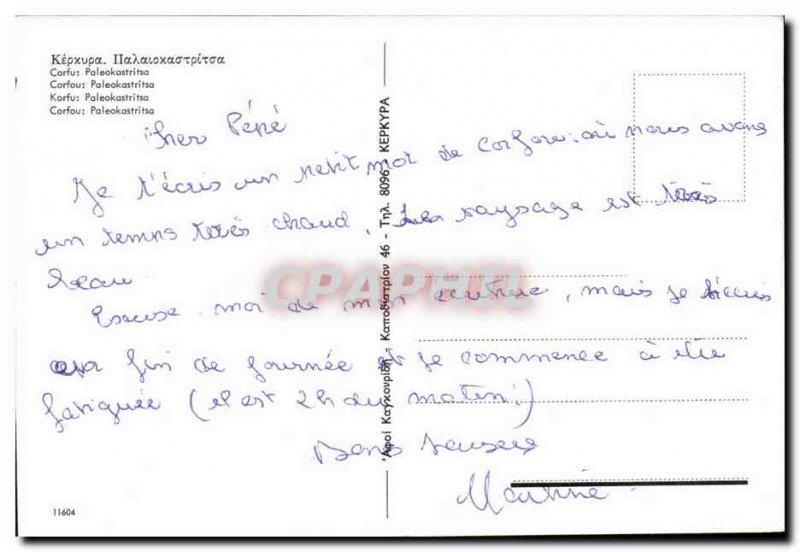 Κέρκυρα. Παλαιοκαστρίτσα
Corfu: Paleokastritsa
Corfou: Paleokastritsa
Korfu: Paleokastritsa
Corfou: Paleokastritsa
Cher Pépé
Je t'écris un petit mot de Corfou où nous avons
un temps très chaud, Les paysage est très
beau.
Escuse moi de mon écriture, mais je t'écris
en fin de journée et je commence à être
fatiguée (il est 2h du matin!)
Bons baisers
Martine
'Αφοί Καγκουρίδη - Καποδιστρίου 46 - Τηλ. 8096 ΚΕΡΚΥΡΑ
CPAPHIL
11604